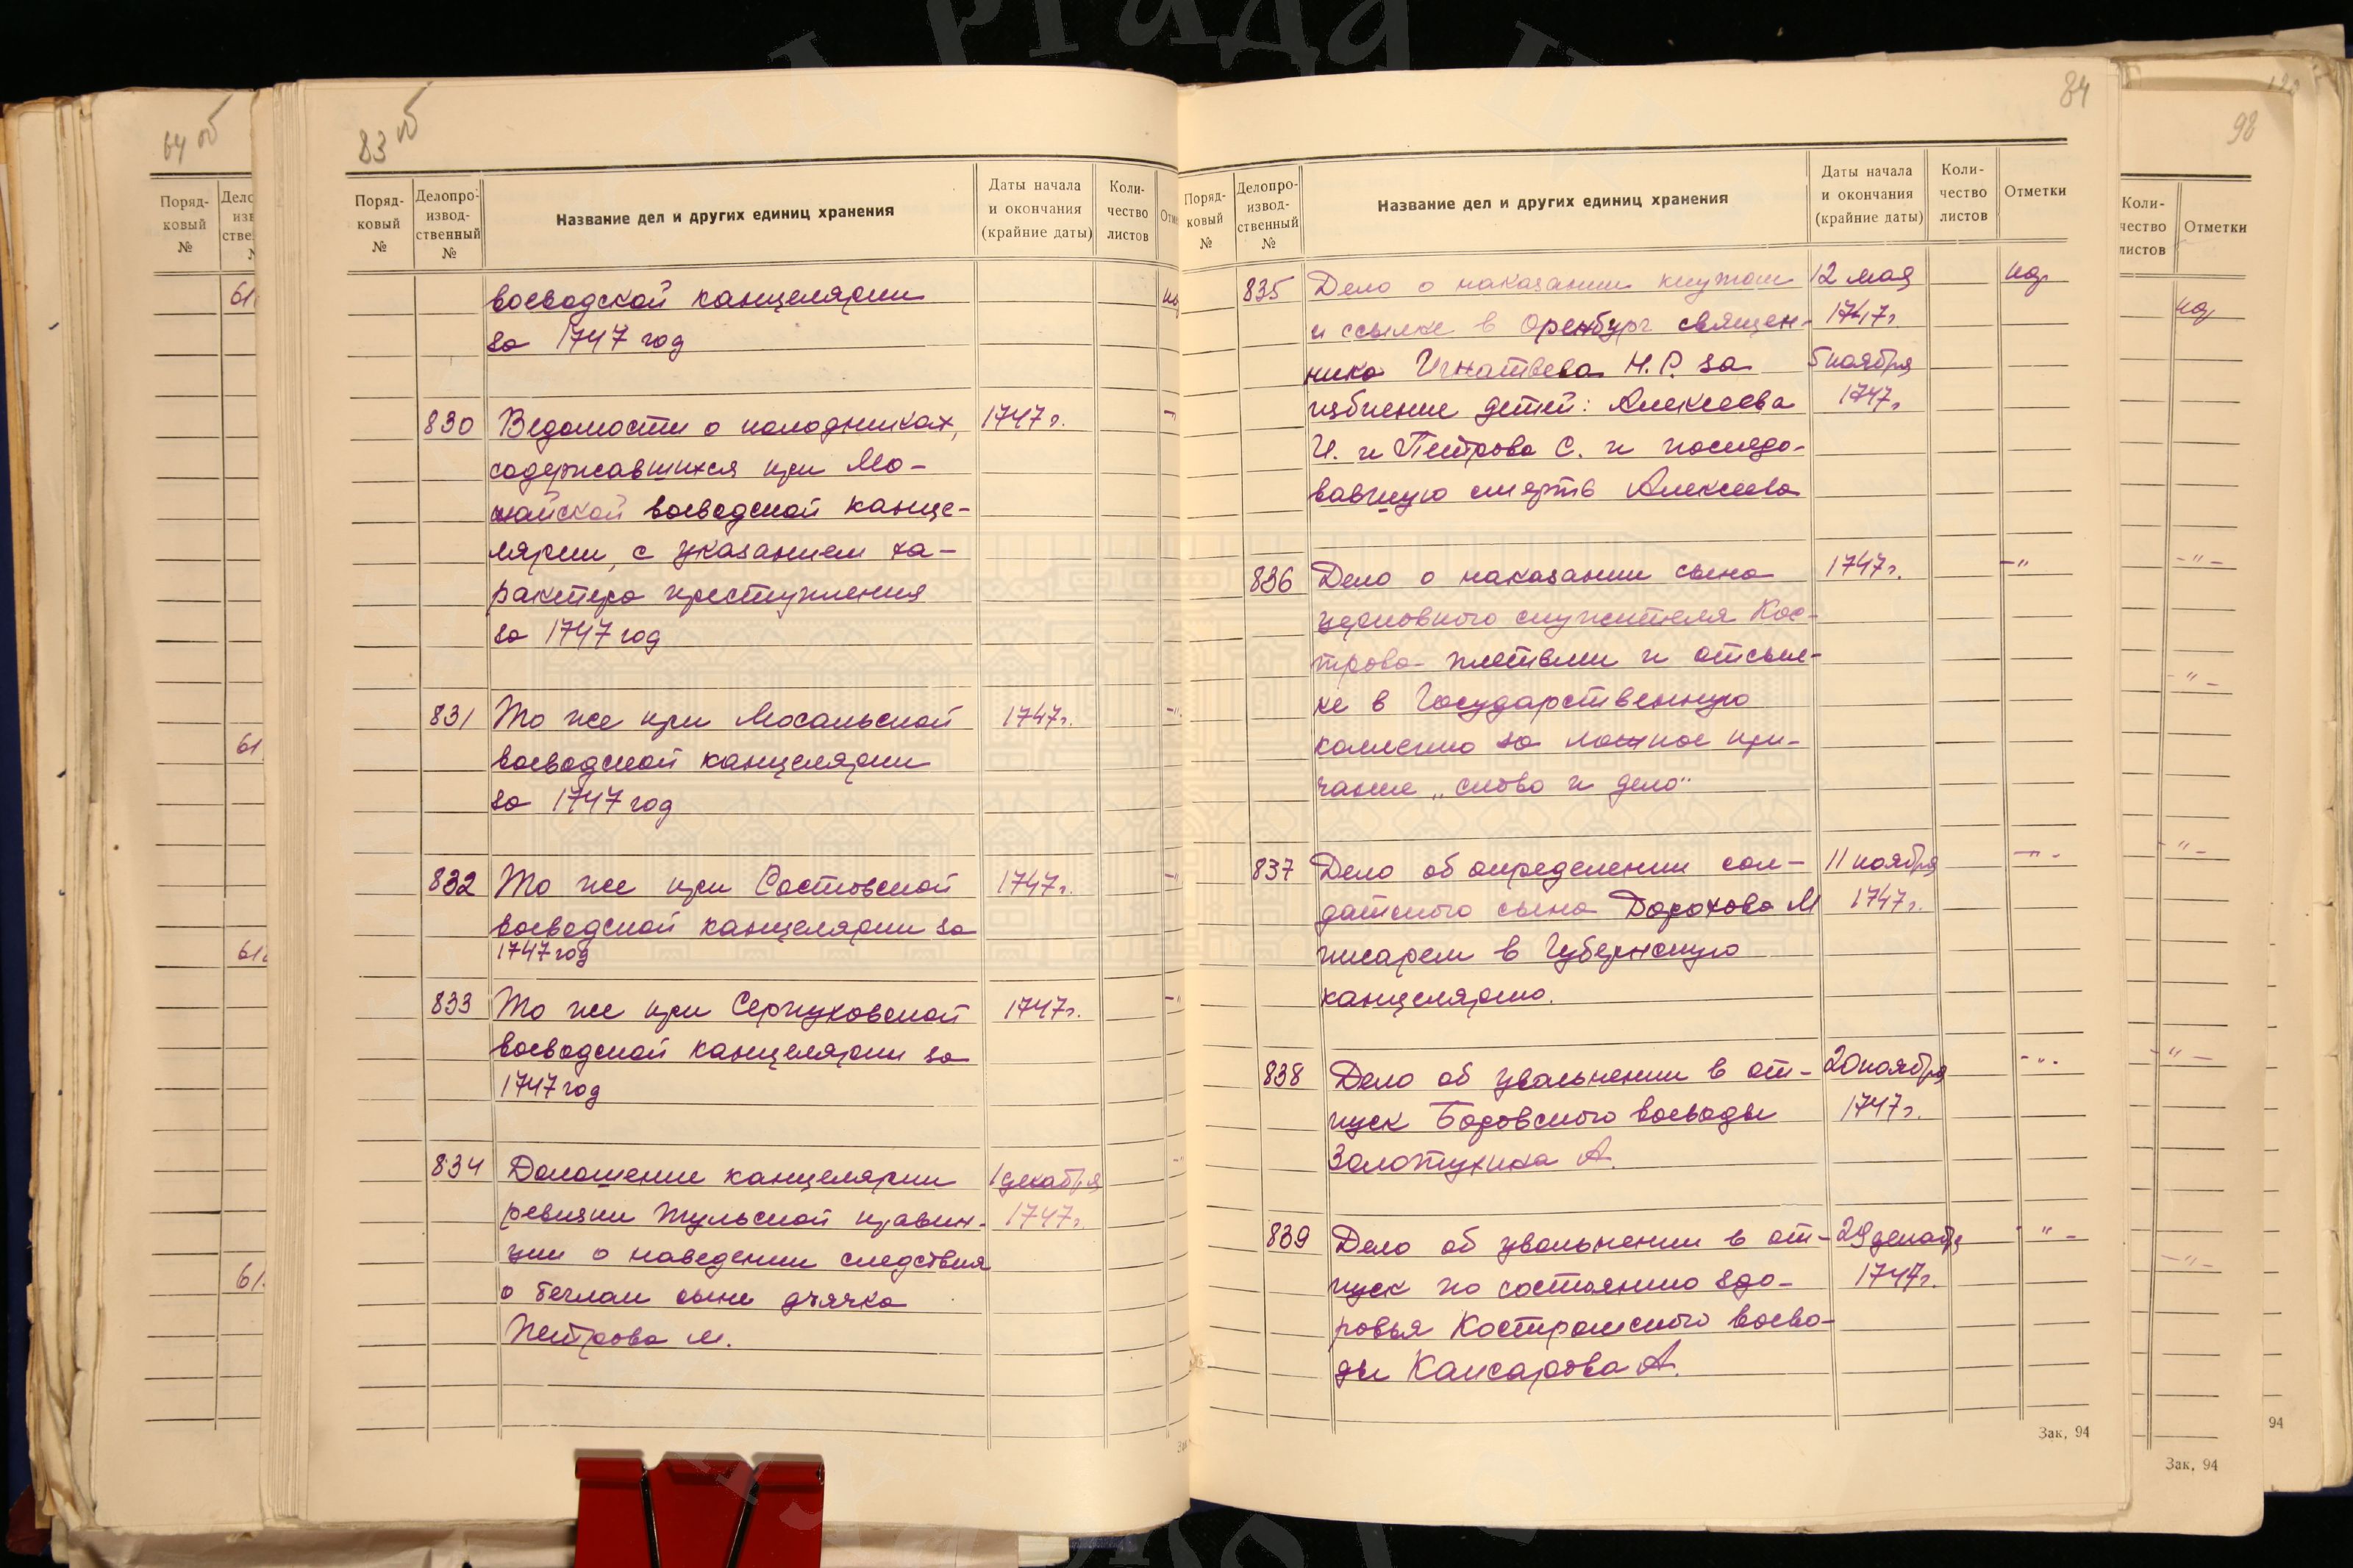 83 об
Поряд-
ковый
№
Делопро-
извод-
ственный
№
Название дел и других единиц хранения
Даты начала
и окончания
(крайние даты)
Коли-
чество
листов
воеводской канцелярии
за 1747 год
830 Ведомости о колодниках, 1747 г.
содержавшихся при Мо-
жайской воеводской канце-
лярии, с указанием ха-
рактера преступления
за 1747 год
831 То же при Мосальской 1747 г.
воеводской канцелярии
за 1747 год
832 То же при 1747 г.
воеводской канцелярии за
1747 год
833 То же при Серпуховской 1747 г.
воеводской канцелярии за
1747 год
834 Доношение канцелярии 1 декабря
ревизии Тульской провин- 1747 г.
ции о наведении следствия
о беглом сыне дьячка
Петрова М.
84
Поряд-
ковый
№
Делопро-
извод-
ственный
№
Название дел и других единиц хранения
Даты начала
и окончания
(крайние даты)
Коли-
чество
листов
Отметки
835 Дело о наказании кнутом 12 мая
и ссылке в Оренбург священ- 1747 г.
ника Игнатьева Н.Р. за 5 ноября
избиение детей: Алексеева 1747 г.
И. и Петрова С. и последо-
вавшую смерть Алексеева
836 Дело о наказании сына 1747 г. -"
церковного служителя Кос-
трова плетьми и отсыл-
ке в Государственную
коллегию за ложное кри-
чание „слово и дело"
837 Дело об определении сол- 11 ноября -"-
датского сына Дорохова М 1747 г.
писарем в Губернскую
канцелярию.
838 Дело об увольнении в от- 20 ноября -"-
пуск Боровского воеводы 1747 г.
Золотухина А.
839 Дело об увольнении в от- 29 декабр "-
пуск по состоянию здо- 1747 г.
ровья Костромского воево-
ды Камсарова А.
Зак. 94
64 об
Поряд-
ковый
№
98
Коли-
чество
листов
Отметки
-"-
-"-
-"-
-"-
-"-
Зак. 94
94